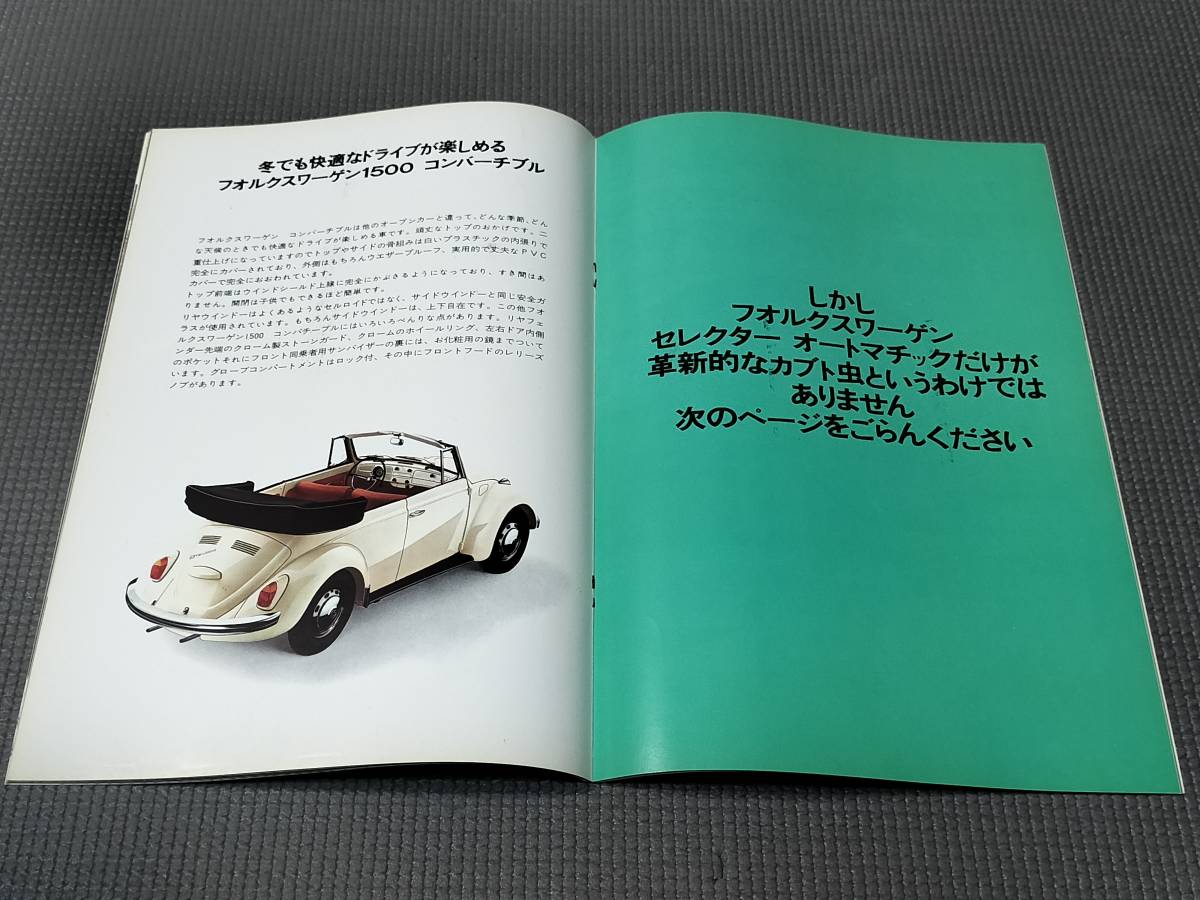 冬でも快適なドライブが楽しめる
フオルクスワーゲン1500 コンバーチブル
フオルクスワーゲン コンバーチブルは他のオープンカーと違って、どんな季節、どん
な天候のときでも快適なドライブが楽しめる車です。頑丈なトップのおかげです。二
重仕上げになっていますのでトップやサイドの骨組みは白いプラスチックの内張りで
完全にカバーされており、外側はもちろんウエザープルーフ、実用的で丈夫なPVC
カバーで完全におおわれています。
トップ前端はウインドシールド上縁に完全にかぶさるようになっており、すき間はあ
りません。開閉は子供でもできるほど簡単です。
リヤウインドーはよくあるようなセルロイドではなく、サイドウインドーと同じ安全ガ
ラスが使用されています。もちろんサイドウインドーは、上下自在です。この他フオ
ルクスワーゲン1500 コンバチーブルにはいろいろべんりな点があります。リヤフェ
ンダー先端のクローム製ストーンガード、クロームのホイールリング、左右ドア内側
のポケットそれにフロント同乗者用サンバイザーの裏には、お化粧用の鏡までついて
います。グローブコンパートメントはロック付、その中にフロントフードのレリーズ
ノブがあります。
しかし
フオルクスワーゲン
セレクター オートマチックだけが
革新的なカブト虫というわけでは
ありません
次のページをごらんください